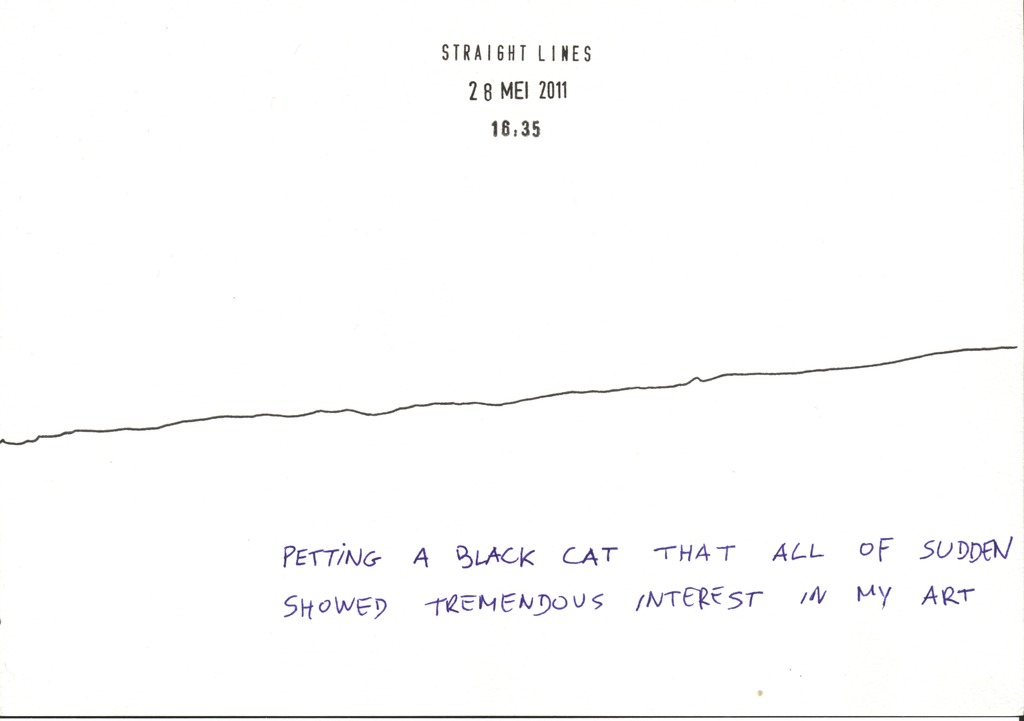 STRAIGHT LINES
28 MEI 2011
16:35
PETTING A BLACK CAT THAT ALL OF SUDDEN
SHOWED TREMENDOUS INTEREST IN MY ART